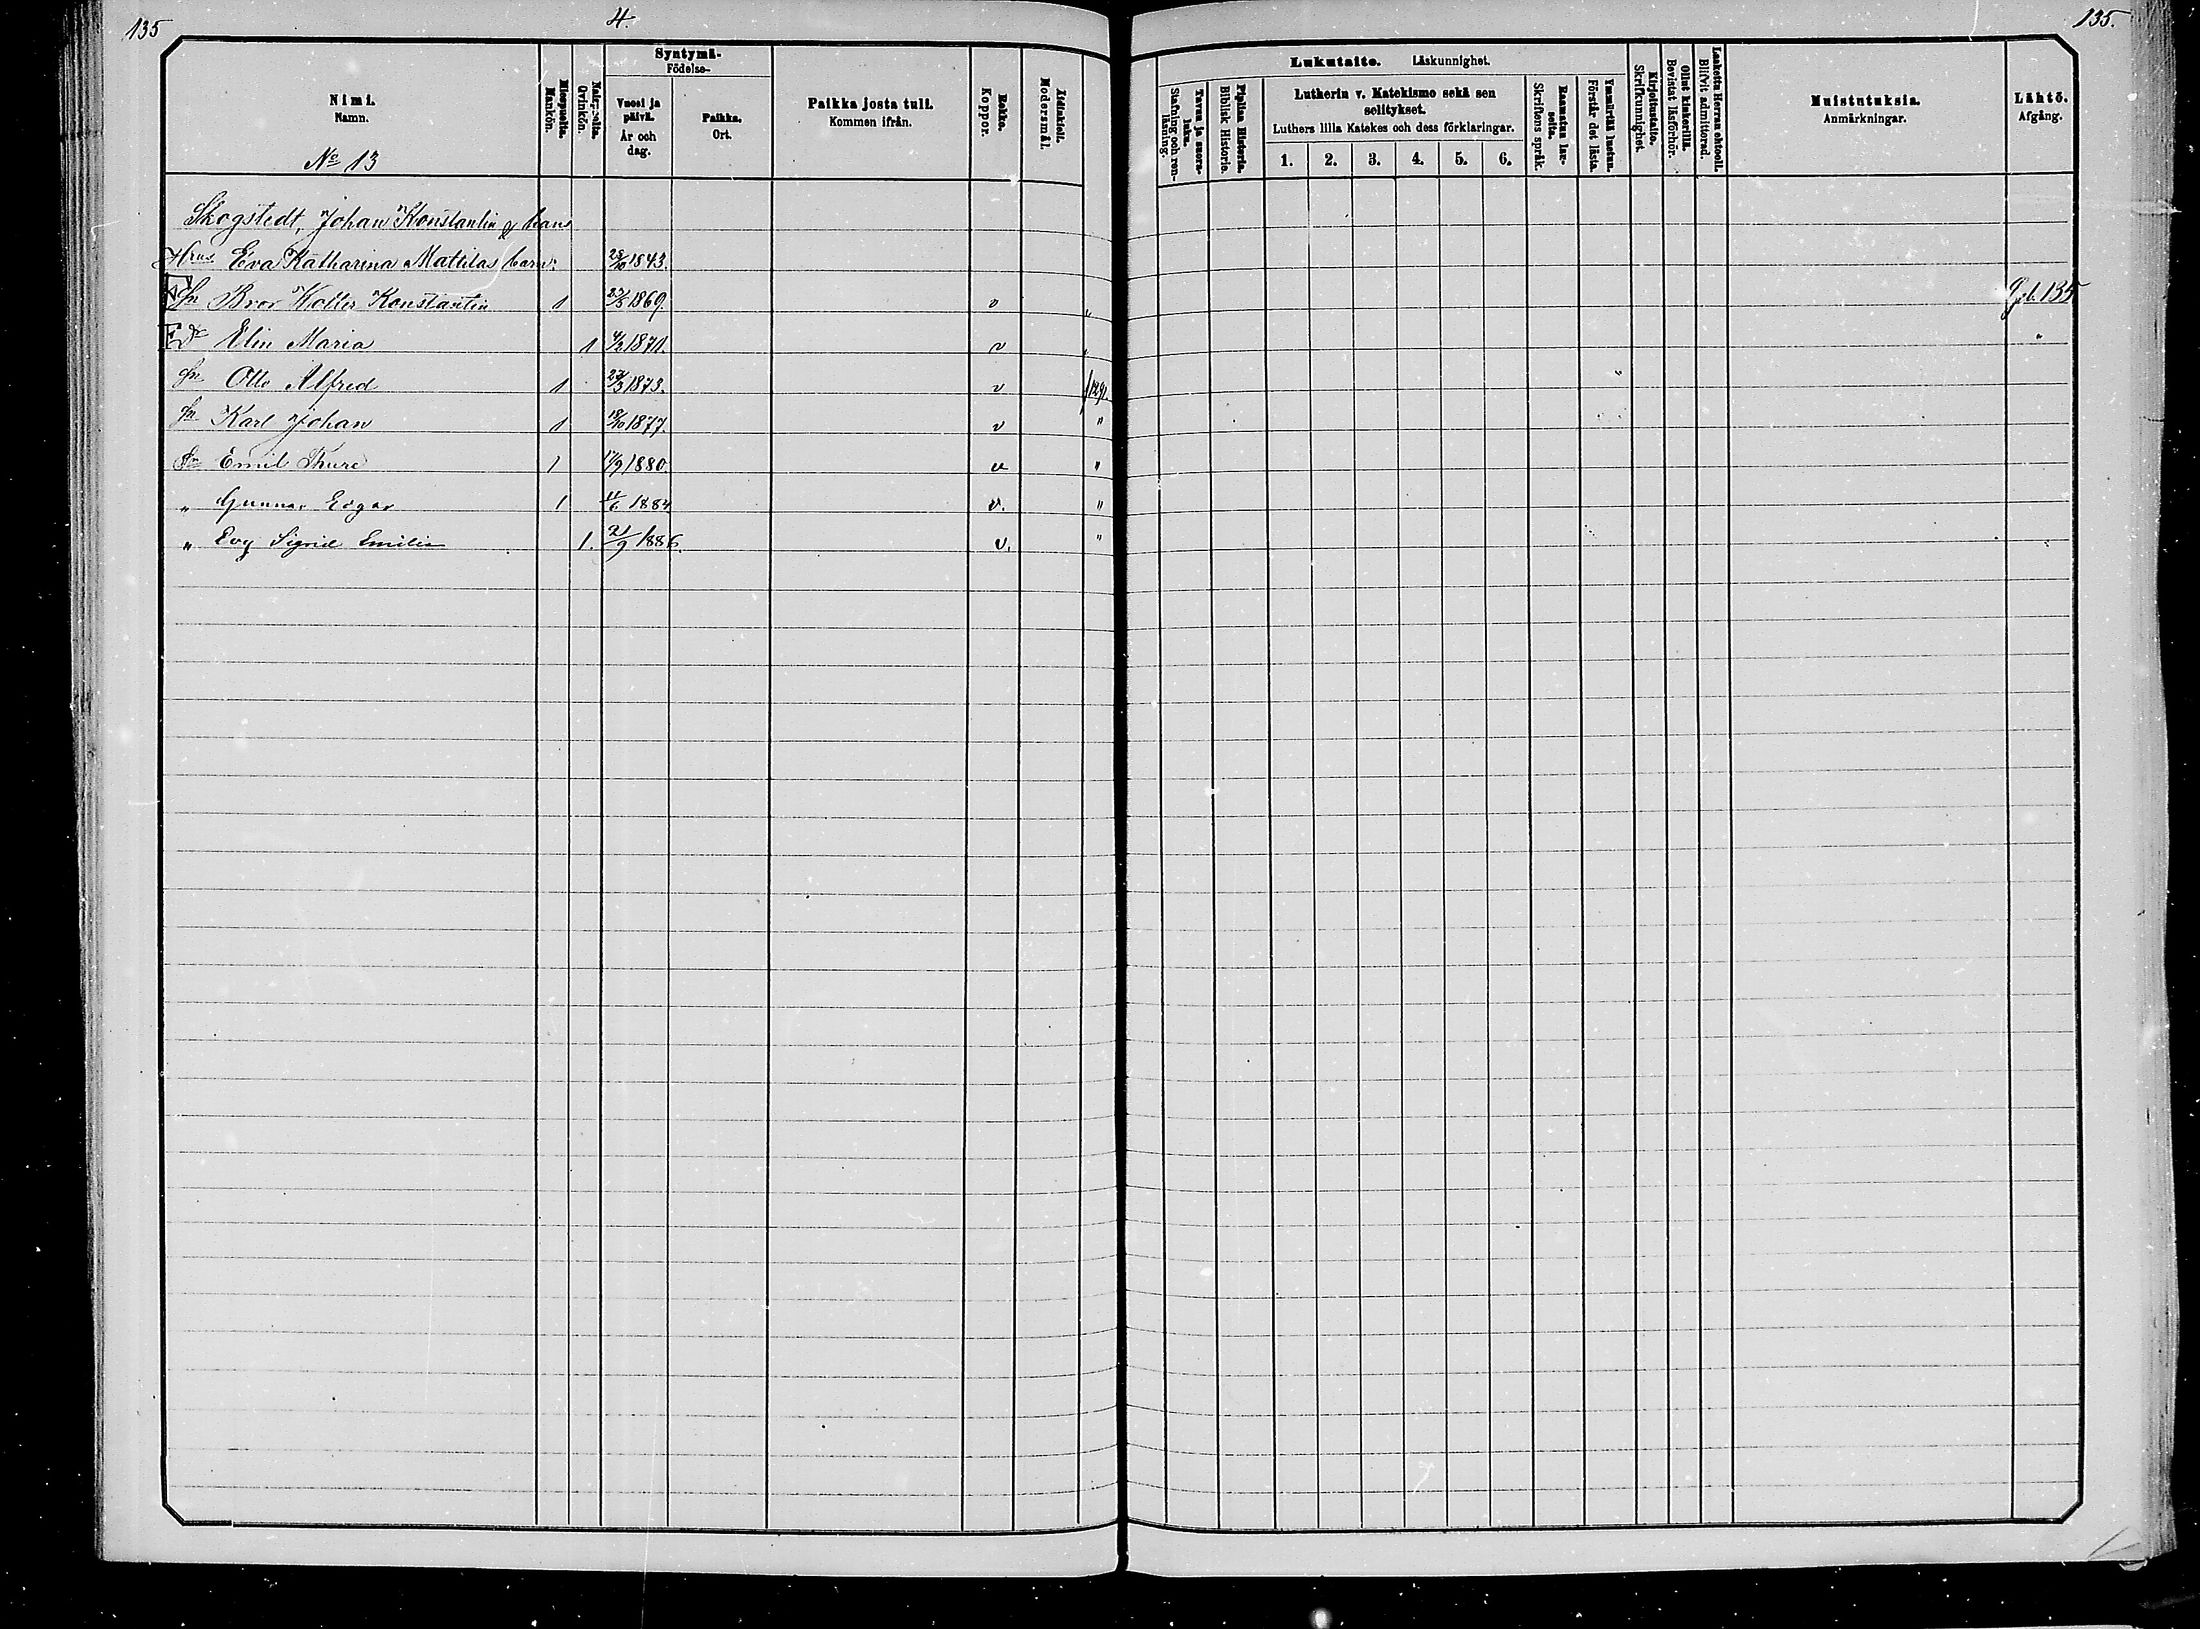 135
4.
135.
Nimi.
Namn.
No 13
Miespuolta.
Mankön.
Naispuolta.
Qvinkön.
Syntymä-
Födelse-
Vuosi ja päivä.
År och dag.
Paikka.
Ort.
Paikka josta tuli.
Kommen ifrån.
Rokko.
Koppor.
Äidinkieli.
Modersmål.
Lukutaito. Läskunnighet.
Tavuu ja suora- luku.
Stafning och ren- läsning.
Piplian Historia.
Biblisk Historie.
Lutherin v. Katekismo sekä sen selitykset.
Luthers lilla Katekes och dess förklaringar.
1. 2. 3. 4. 5. 6.
Skriftens språk.
Ymmärtää luetun.
Förstår det lästa.
Kirjoitustaito.
Skrifkunnighet.
Ollut kinkerillä.
Bevistat läsförhör.
Laskettu Herran ehtooll.
Blifvit admitterad.
Muistutuksia.
Anmärkningar.
Lähtö.
Afgång.
Skogstedt, Johan Konstantin & hans
Hrus Eva Katharina Matildas barn: 1843.
Sn Bror Walter Konstantin 1 1869. v " 135
Dr Elin Maria 1 4/2 1871. v " "
Sn Otto Alfred 1 1873. v
Sn Karl Johan 1 18/10 1877. v "
Sn Emil Thure 1 17/9 1880. v "
" Gunnar Edgar 1 11/6 1884 v. "
" Evy Sigrid Emilia 1. 21/9 1886. v. "